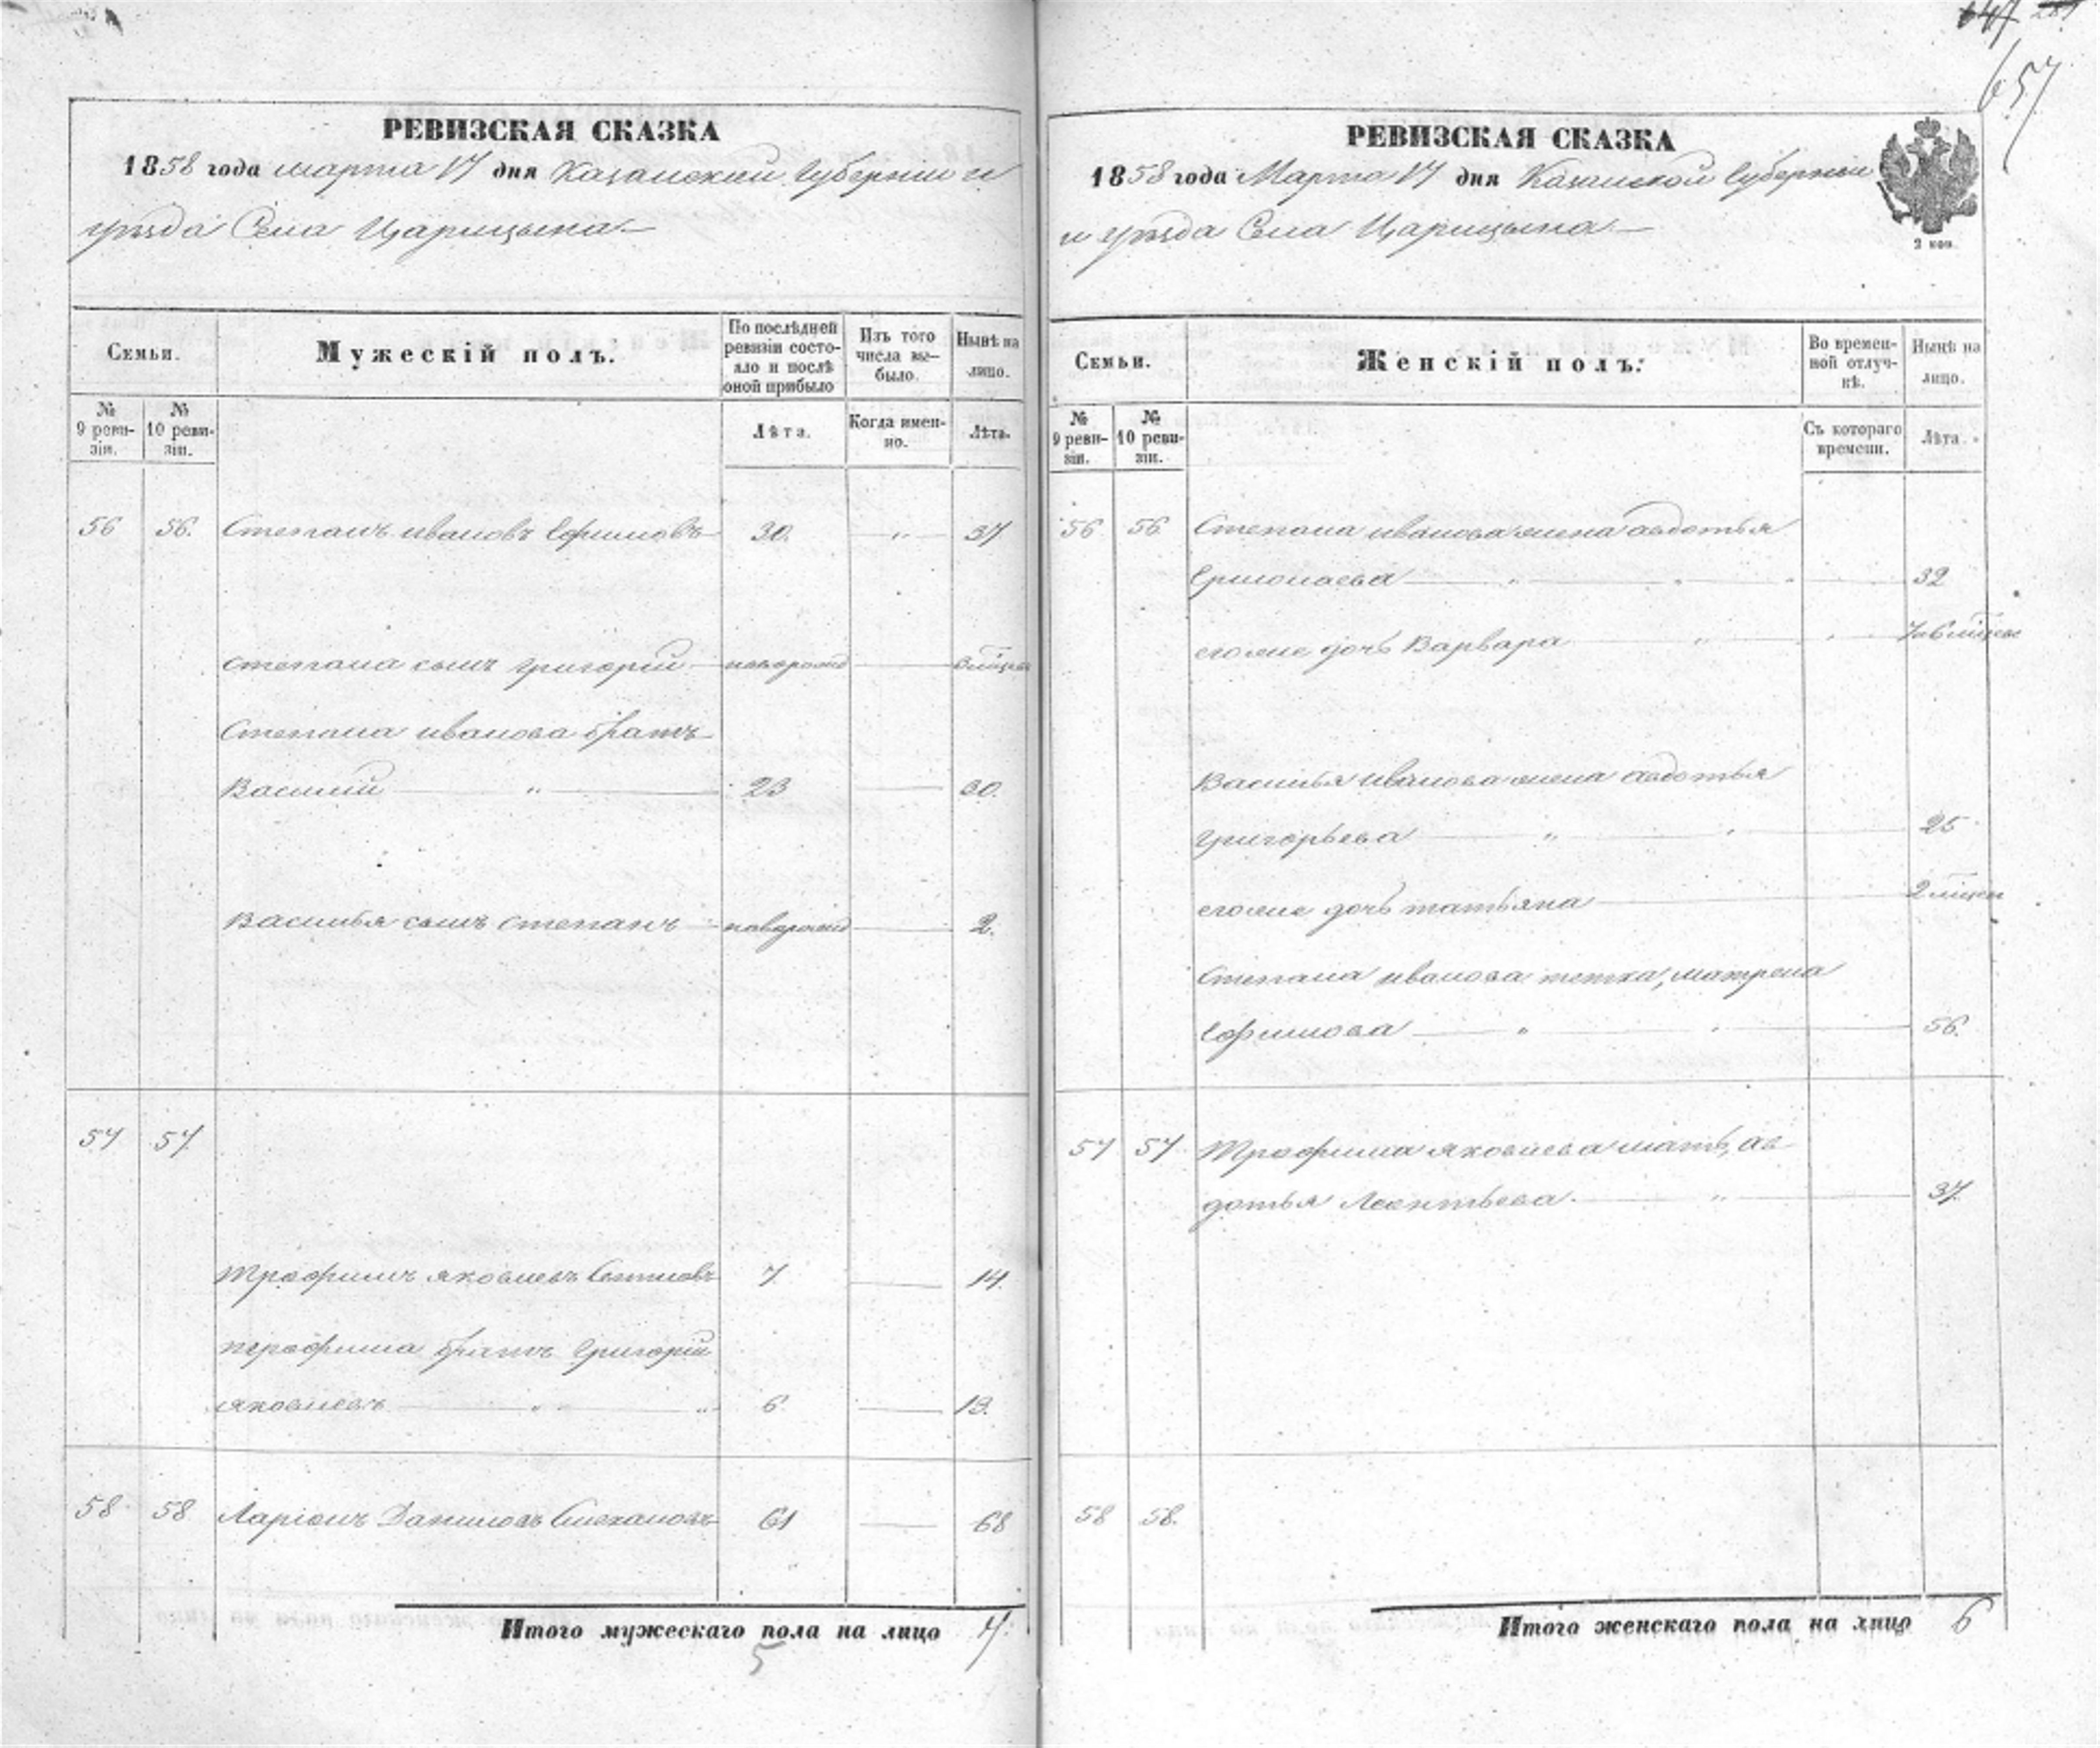 647 281
657
РЕВИЗСКАЯ СКАЗКА
1858 года марта 17 дня Казанской Губернии и
уезда Села Царицына
Семьи.
Мужескій полъ.
По послѣдней ревизіи состо-
яло и послѣ
оной прибыло
Изъ того
числа вы-
было.
Нынѣ на
лицо.
№
9 реви-
зіи.
№
10 реви-
зіи.
Лѣта.
Когда имен-
но.
Лѣта.
56 56. Степанъ ивановъ Ефимовъ 30. 37
степана сынъ григорій новорожд
Степана иванова братъ
Василій 23 30.
Василья сынъ степанъ новорожд 2.
57 57
Трофимъ яковлевъ 7 14.
трофима братъ Григорій
яковлевъ 6 13.
58 58 Ларіонъ Даниловъ 61 68
Итого мужескаго пола на лицо 7.
5
РЕВИЗСКАЯ СКАЗКА
1858 года Марта 17 дня Казанской Губерніи
и уезда Села Царицына
2 коп.
Семьи.
Женскій полъ.
Во времен-
ной отлуч-
кѣ.
Нынѣ на
лицо.
№
9 реви-
зіи.
№
10 реви-
зіи.
Съ котораго
времени.
Лѣта.
56 56 Степана иванова жена авдотья
Ермолаева 32
его же дочь Варвара
Василья иванова жена авдотья
григорьева 25
его же дочь татьяна
Степана иванова тетка, матрена
Ефимова 56.
57 57 Трофима яковлева мать, ав-
дотья Леонтьева. 37
58 58.
Итого женскаго пола на лицо 6